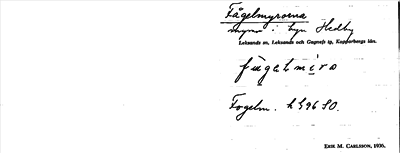 Fågelmyrorna
myror i byn Hedby
Leksands sn, Leksands och Gagnefs tg, Kopparbergs län.
fùgelmiro
Fogelm. h 596 SO.
ERIK M. CARLSSON, 1936.